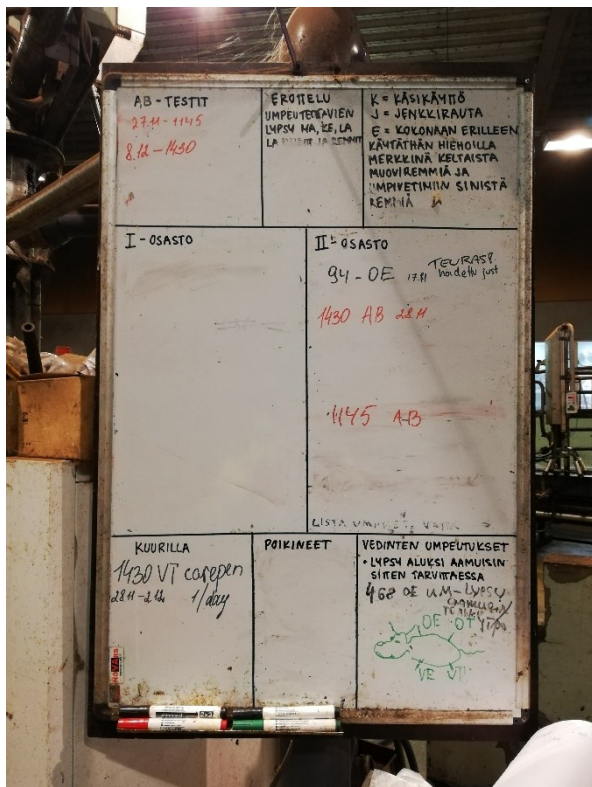 AB - TESTIT
27.11 - 1145
8.12 - 1430
EROTTELU
UMPEUTETTAVIEN
LYPSY MA, KE, LA
K = KÄSIKÄYTTÖ
J = JENKKIRAUTA
E = KOKONAAN ERILLEEN
KÄYTÄTHÄN HIEHOILLA
MERKKINÄ KELTAISTA
MUOVIREMMIÄ JA
UMPIVETIMIIN SINISTÄ
REMMIÄ
I - OSASTO
II - OSASTO
94 - OE 17.11
TEURAS?
hoidettu just
1430 AB 28.11
1145 AB
LISTA
KUURILLA
1430 VT carepen
28.11 - 2.12. 1/day
POIKINEET
VEDINTEN UMPEUTUKSET
• LYPSY ALUKSI AAMUISIN
SITTEN TARVITTAESSA
468 OE UM - LYPSY
OE OT
VE VT